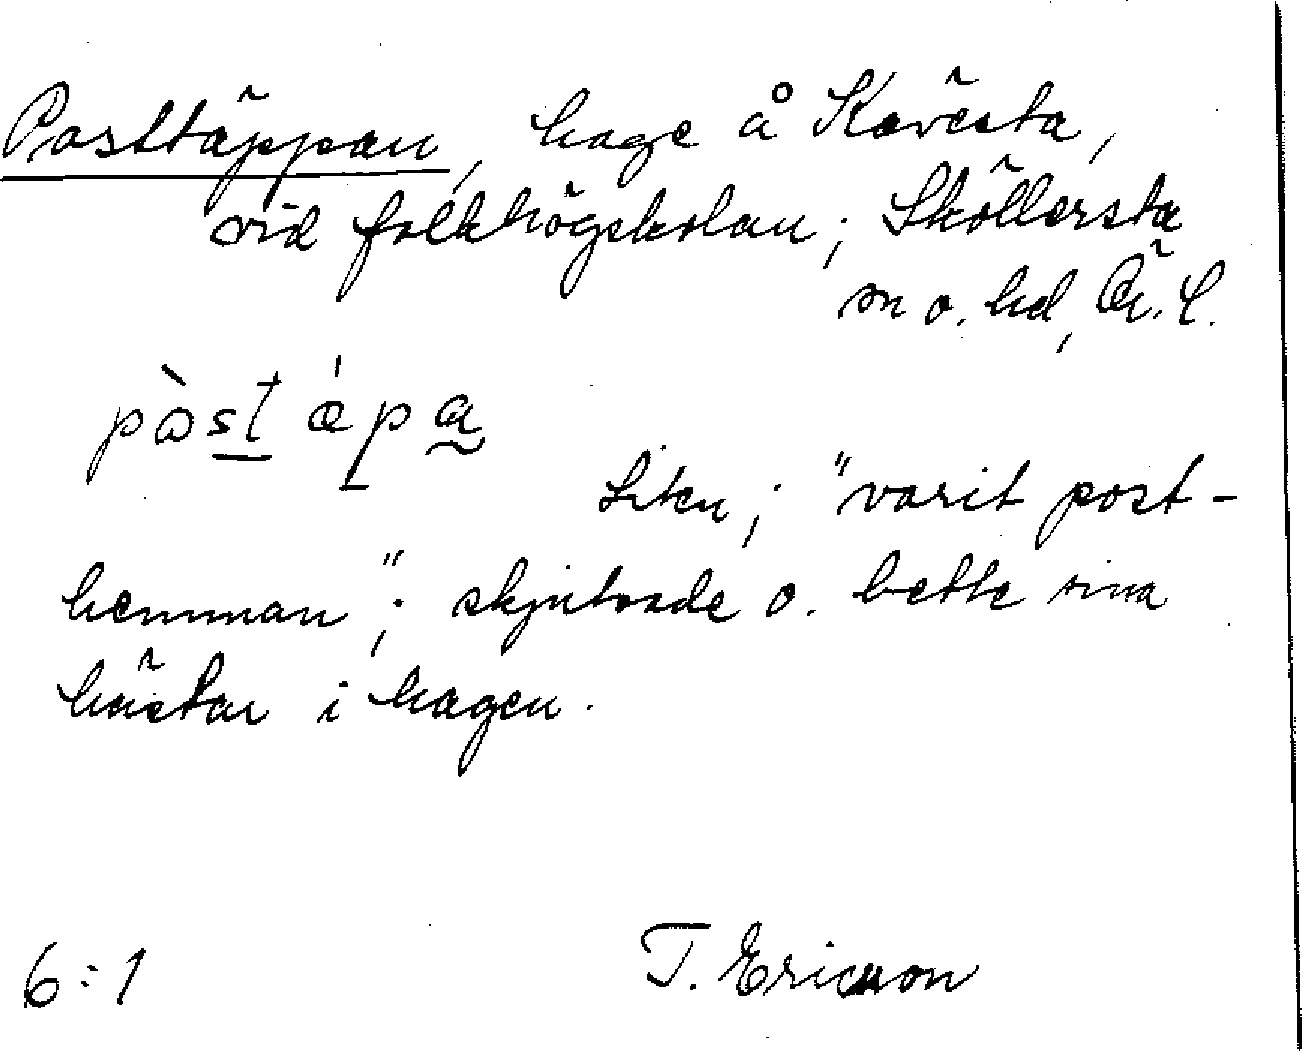 Posttäppan, hage å Kävesta,
vid folkhögskolan; Sköllersta
sn o. hd, Ö.L.
pòstǽpa
Liten; "varit post-
hemman"; skjutsade o. bette sina
hästar i hagen.
6:1 T. Ericsson